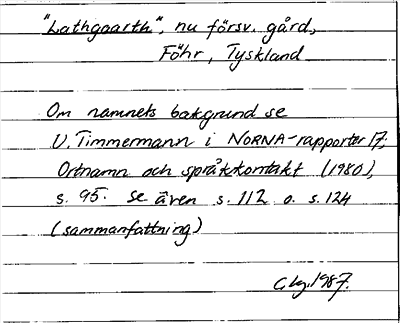 "Lathgaarth", nu försv. gård,
Föhr, Tyskland
Om namnets bakgrund se
U. Timmermann i NORNA-rapporter 17;
Ortnamn och språkkontakt (1980),
s. 95. se även s. 112 o. s. 124
(sammanfattning)
1987.